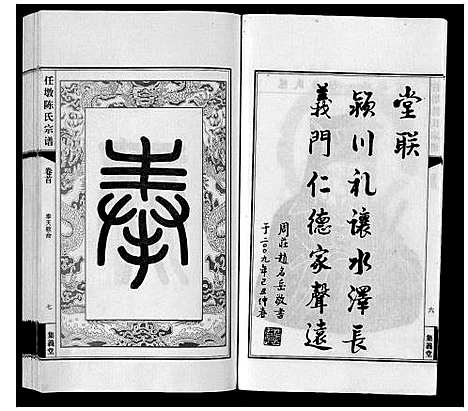 堂联
颍川礼讓水澤長
義門仁德家聲遠
周莊趙名岳敬書
于二〇〇九年己丑仲春
六
集義堂
任墩陈氏宗谱
卷首
奉天敕命
七
集義堂
奉